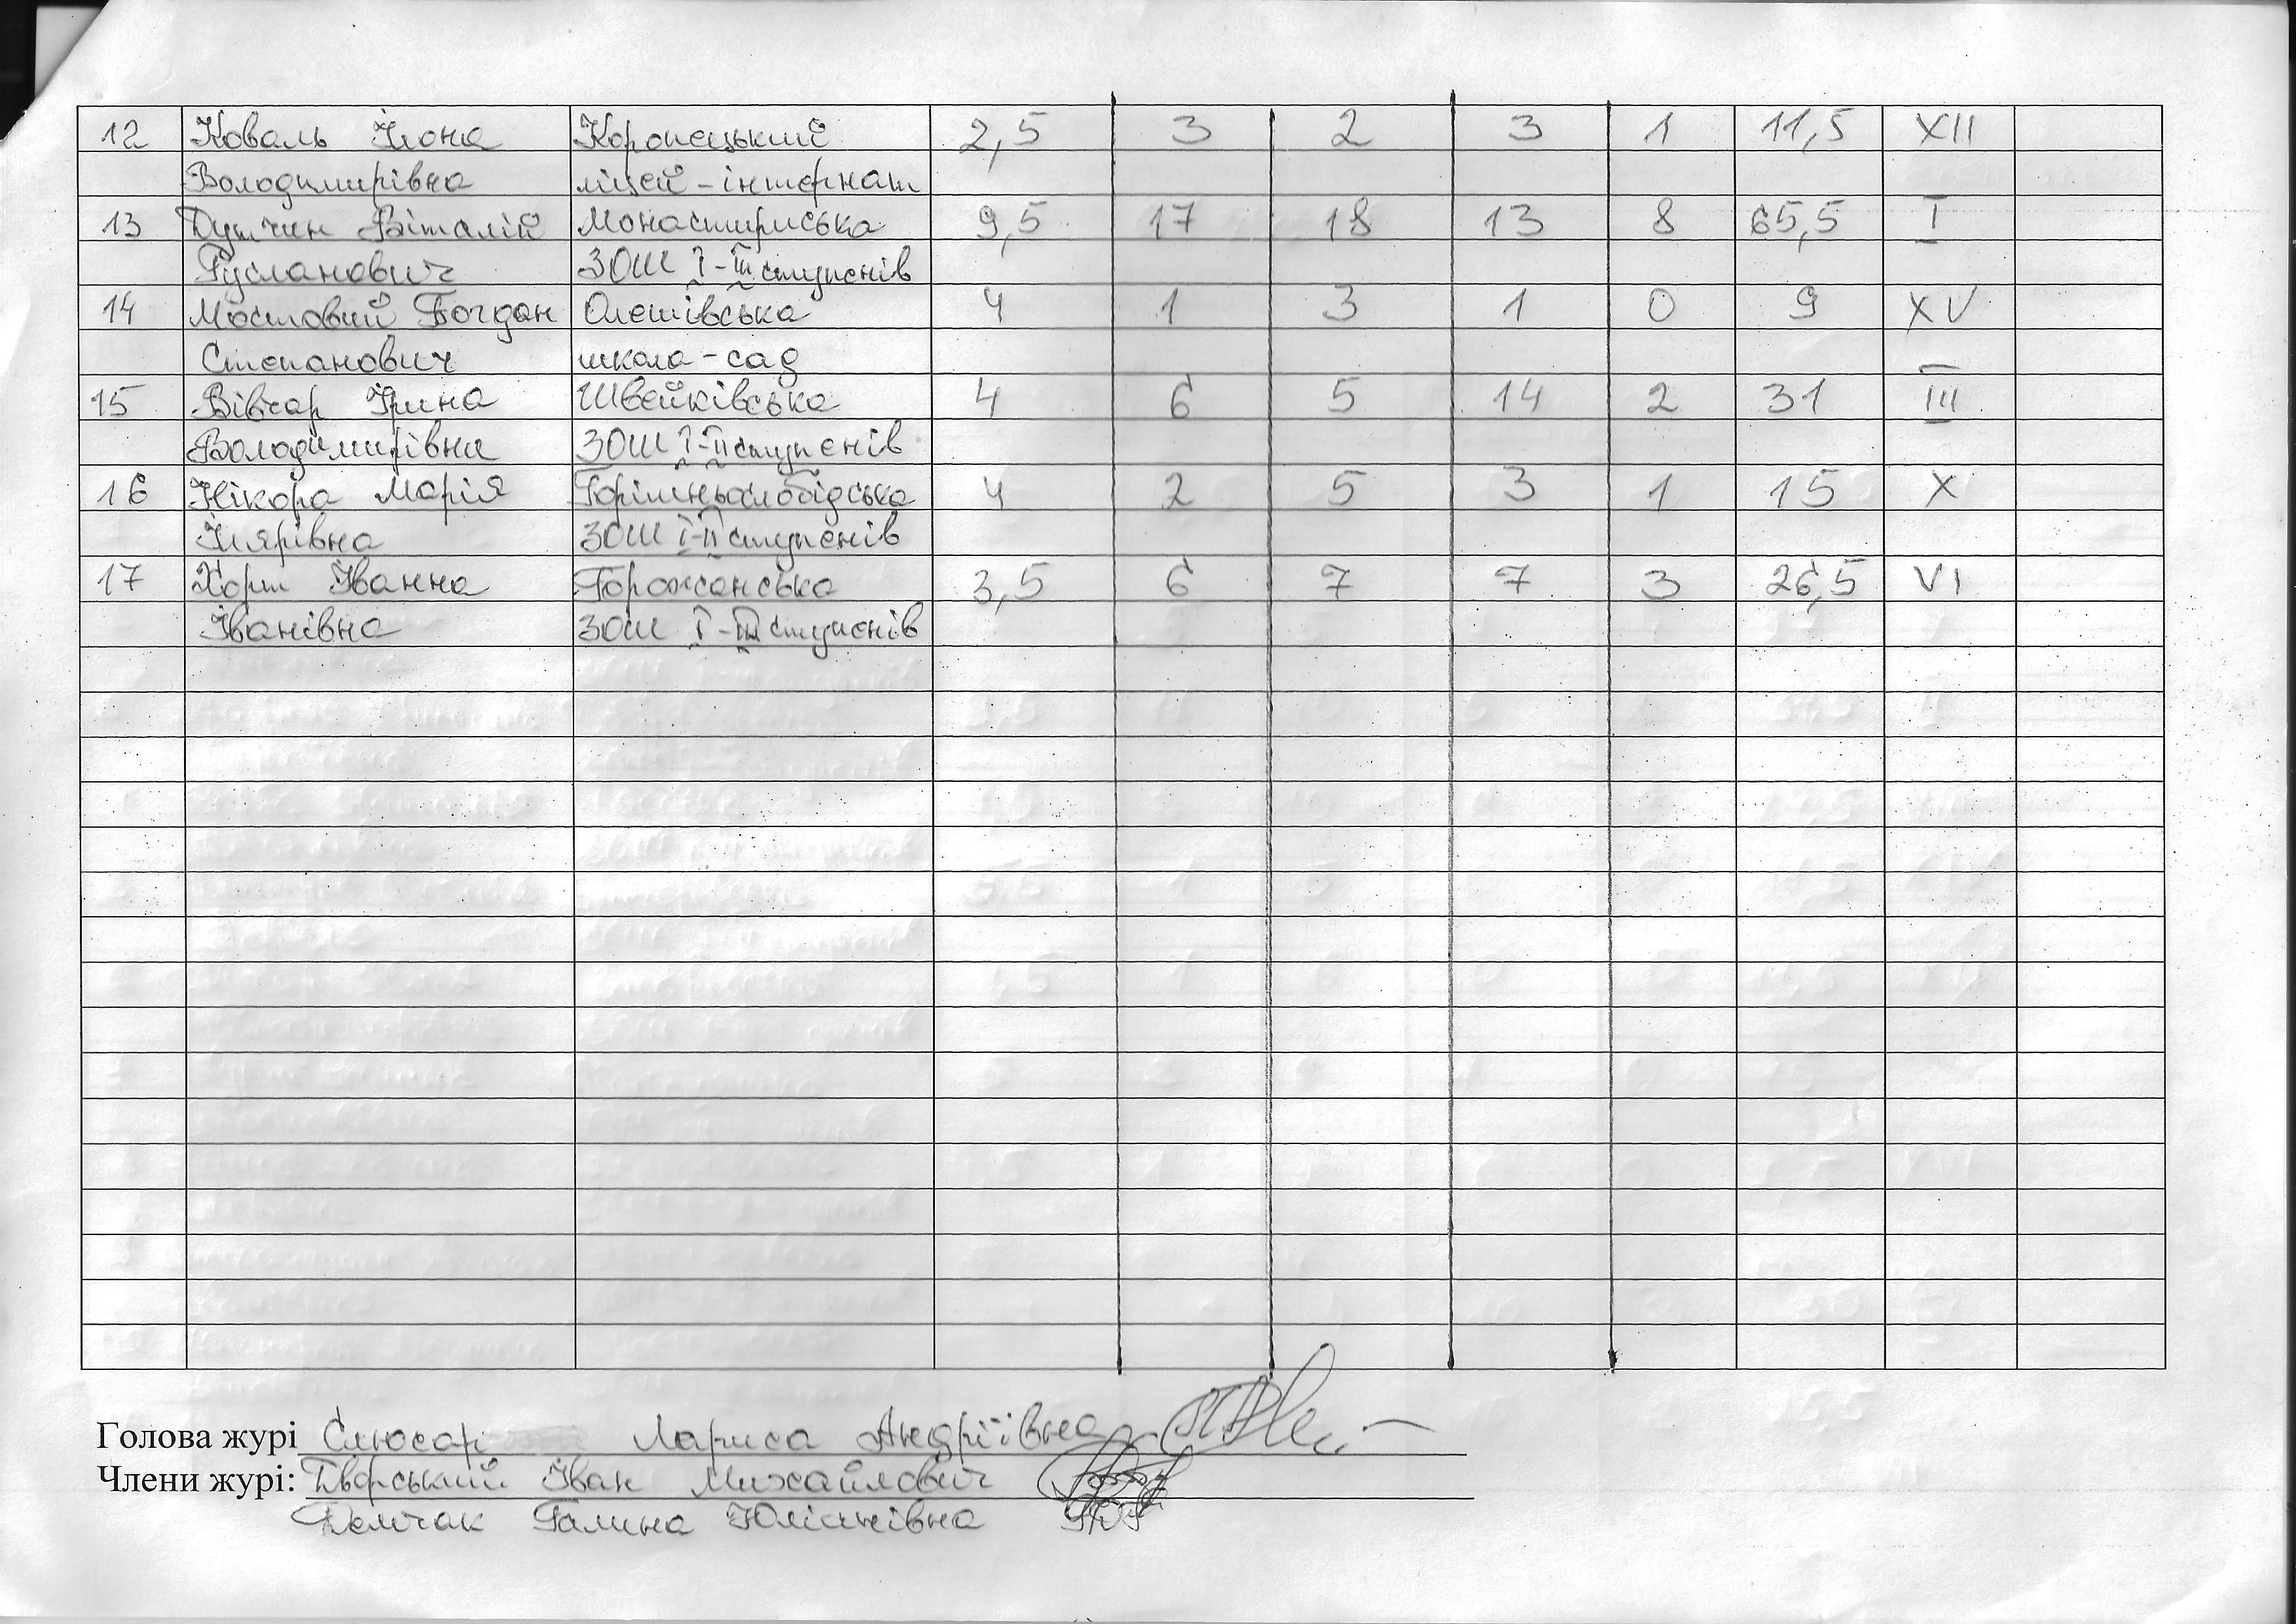 12 Коваль Ілона Коропецький 2,5 3 2 3 1 11,5 XII
Володимирівна ліцей-інтернат
13 Дутчин Віталій Монастириська 9,5 17 18 13 8 65,5 I
Русланович ЗОШ І-ІІІ ступенів
14 Мостовий Богдан Олешівська 4 1 3 1 0 9 XV
Степанович школа-сад
15 Вівчар Ірина Швейківська 4 6 5 14 2 31 III
Володимирівна ЗОШ І-ІІ ступенів
16 Нікора Марія Горішньослобідська 4 2 5 3 1 15 X
Ілярівна ЗОШ І-ІІ ступенів
17 Хорт Іванна Горожанська 3,5 6 7 7 3 26,5 VI
Іванівна ЗОШ І-ІІІ ступенів
Голова журі Слюсар Лариса Андріївна
Члени журі: Дворський Іван Михайлович
Демчак Галина Юліанівна